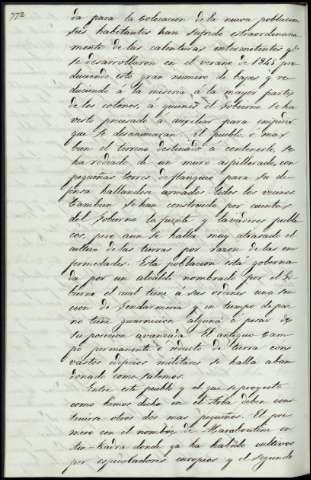 772
da para la colocacion de la nueva poblacion
sus habitantes han sufrido extraordinaria
mente de las calenturas intermitentes qe
se desarrollaron en el verano de 1845 pro
duciendo este gran número de bajas y re
duciendo á la miseria á la mayor parte
de los colonos, á quienes el Gobierno se ha
visto precisado á auxiliar para impedir
que se desanimaran. El pueblo ó mas
bien el terreno destinado á contenerle, se
ha rodeado de un muro aspillerado, con
pequeñas torres de flanqueo para su de
fensa hallandose armados todos los vecinos
tambien se han construido por cuenta
del Gobierno la fuente y lavaderos publi
cos, pero aun se halla muy atrasado el
cultivo de las tierras por razon de las en
fermedades. Esta poblacion está goberna
da por un alcalde nombrado por el Go
bierno el cual tiene á sus ordenes una sec
cion de Gendarmeria y en tiempo de paz
no tiene guarnicion alguna á pesar de
su posicion avanzada. El antiguo cam
po permanente ó reducto de tierra con
vastos edificios militares se halla aban
donado como sabemos.
Entre este pueblo y el que se proyecta
como hemos dicho en el deben cons
truirse otros dos mas pequeños. El pri
mero con el nombre de Maraboutine en
donde ya ha habido cultivos
por especuladores europeos y el segundo